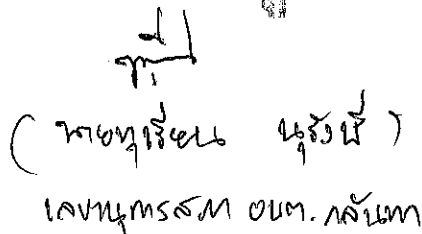 (นายทุเรียน นุรังษี)
เลขานุการสภา อบต. กลันทา